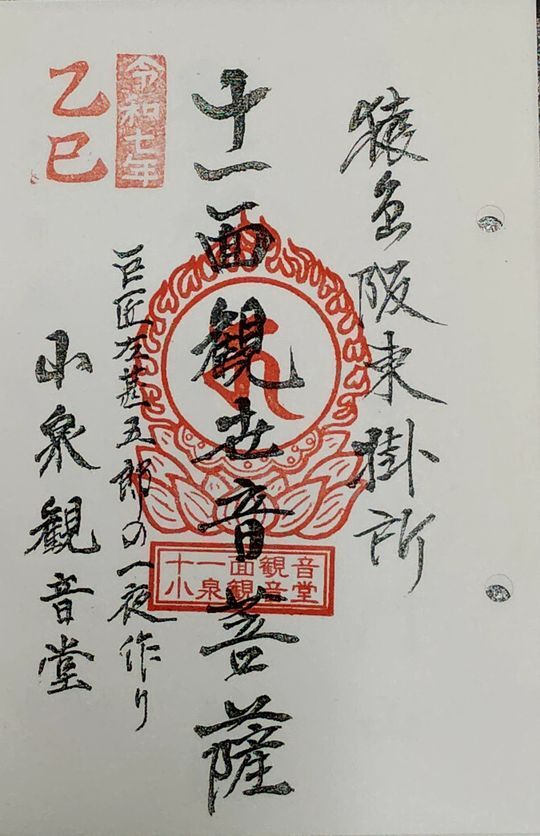 猿島阪東掛所
十一面観世音菩薩
十一面観音
小泉観音堂
令和七年
乙巳
巨匠左甚五郎の一夜作り
小泉観音堂